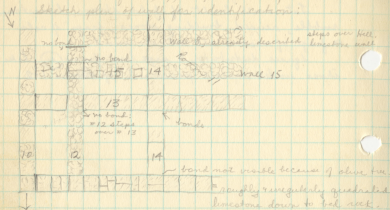 N
Sketch plan of wall for identification:
Wall 8, already described steps over ball,
limestone wall
no bond
no bond
15
14
Wall 15
13
no bond
#12 steps
over #13
bonds
10
12
14
bond not visible because of olive tree
roughly & irregularly quadrated
limestone down to bed rock.